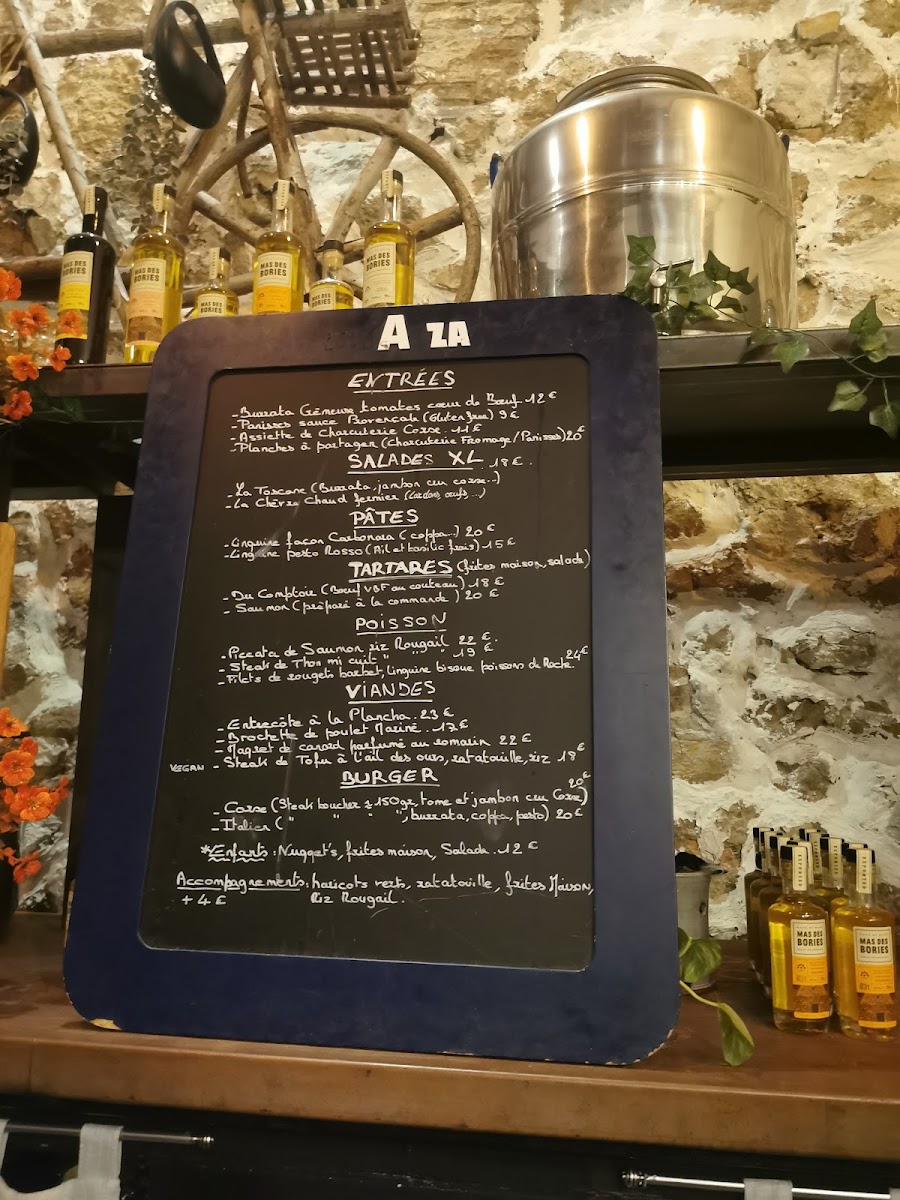 MAS DES BORIES
MAS DES BORIES
MAS DES BORIES
MAS DES BORIES
MAS DES BORIES
MAS DES BORIES
A ZA
ENTRÉES
- Burrata Crèmeuse, tomates cœur de Bœuf. 12 €
- Panisses sauce Provençale (Gluten free) 9 €
- Assiette de Charcuterie Corse. 11 €
- Planches à partager (Charcuterie Fromage/Panisses) 20 €
SALADES XL 18 €.
- La Toscane (Burrata, jambon cru corse..)
- La Chèvre Chaud fermier (Lardons, œufs...)
PÂTES
- Linguine façon Carbonara (coppa..) 20 €
- Linguine pesto Rosso (Ail et basilic frais) 15 €
TARTARES (frites maison, salade)
- Du Comptoir (Bœuf VBF au couteau) 18 €
- Saumon (préparé à la commande) 20 €
POISSON
- Piccata de Saumon, riz Rougail 22 €.
- Steak de Thon mi cuit " " " 19 €
- Filets de rougets barbet, linguine bisque poissons de Roche. 24 €
VIANDES
- Entrecôte à la Plancha. 23 €
- Brochette de poulet Mariné. 17 €
- Magret de canard parfumé au romarin 22 €
VEGAN - Steak de Tofu à l'ail des ours, ratatouille, riz 18 €
BURGER
- Corse (Steak boucher ± 150gr, tome et jambon cru Corse) 20 €
- Italien ( " " " ", burrata, coppa, pesto) 20 €
*Enfants : Nugget's, frites maison, Salade. 12 €
Accompagnements : haricots verts, ratatouille, frites Maison,
+ 4 € Riz Rougail.
MAS DES BORIES
MAS DES BORIES